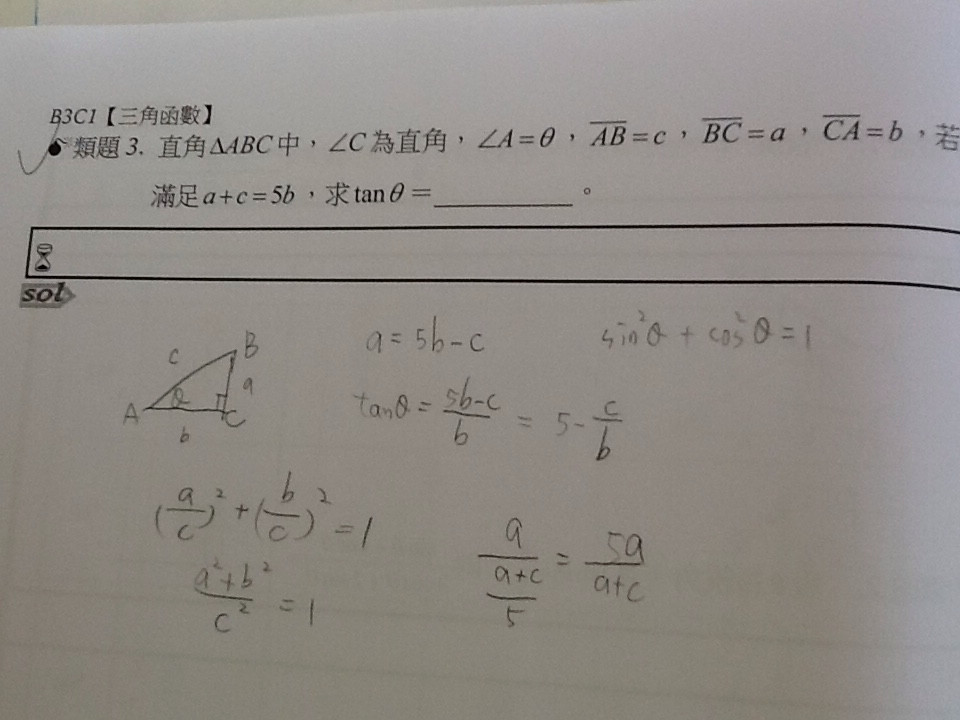 B3C1【三角函數】
類題 3. 直角ΔABC中，∠C為直角，∠A=θ，AB=c，BC=a，CA=b，若
滿足a+c=5b，求tanθ=__________。
sol
c B
A θ a
C
b
a = 5b-c
sin²θ + cos²θ = 1
tanθ = (5b-c)/b = 5 - c/b
(a/c)² + (b/c)² = 1
(a²+b²)/c² = 1
a/((a+c)/5) = 5a/(a+c)